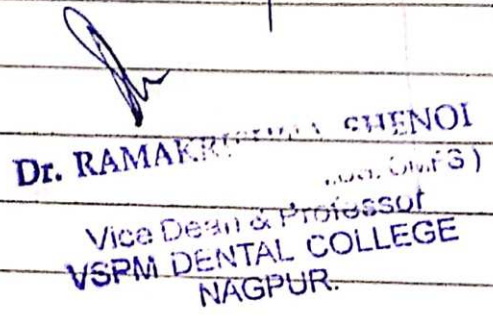 Dr. RAMAKRISHNA SHENOI
Vice Dean & Professor
VSPM DENTAL COLLEGE
NAGPUR.